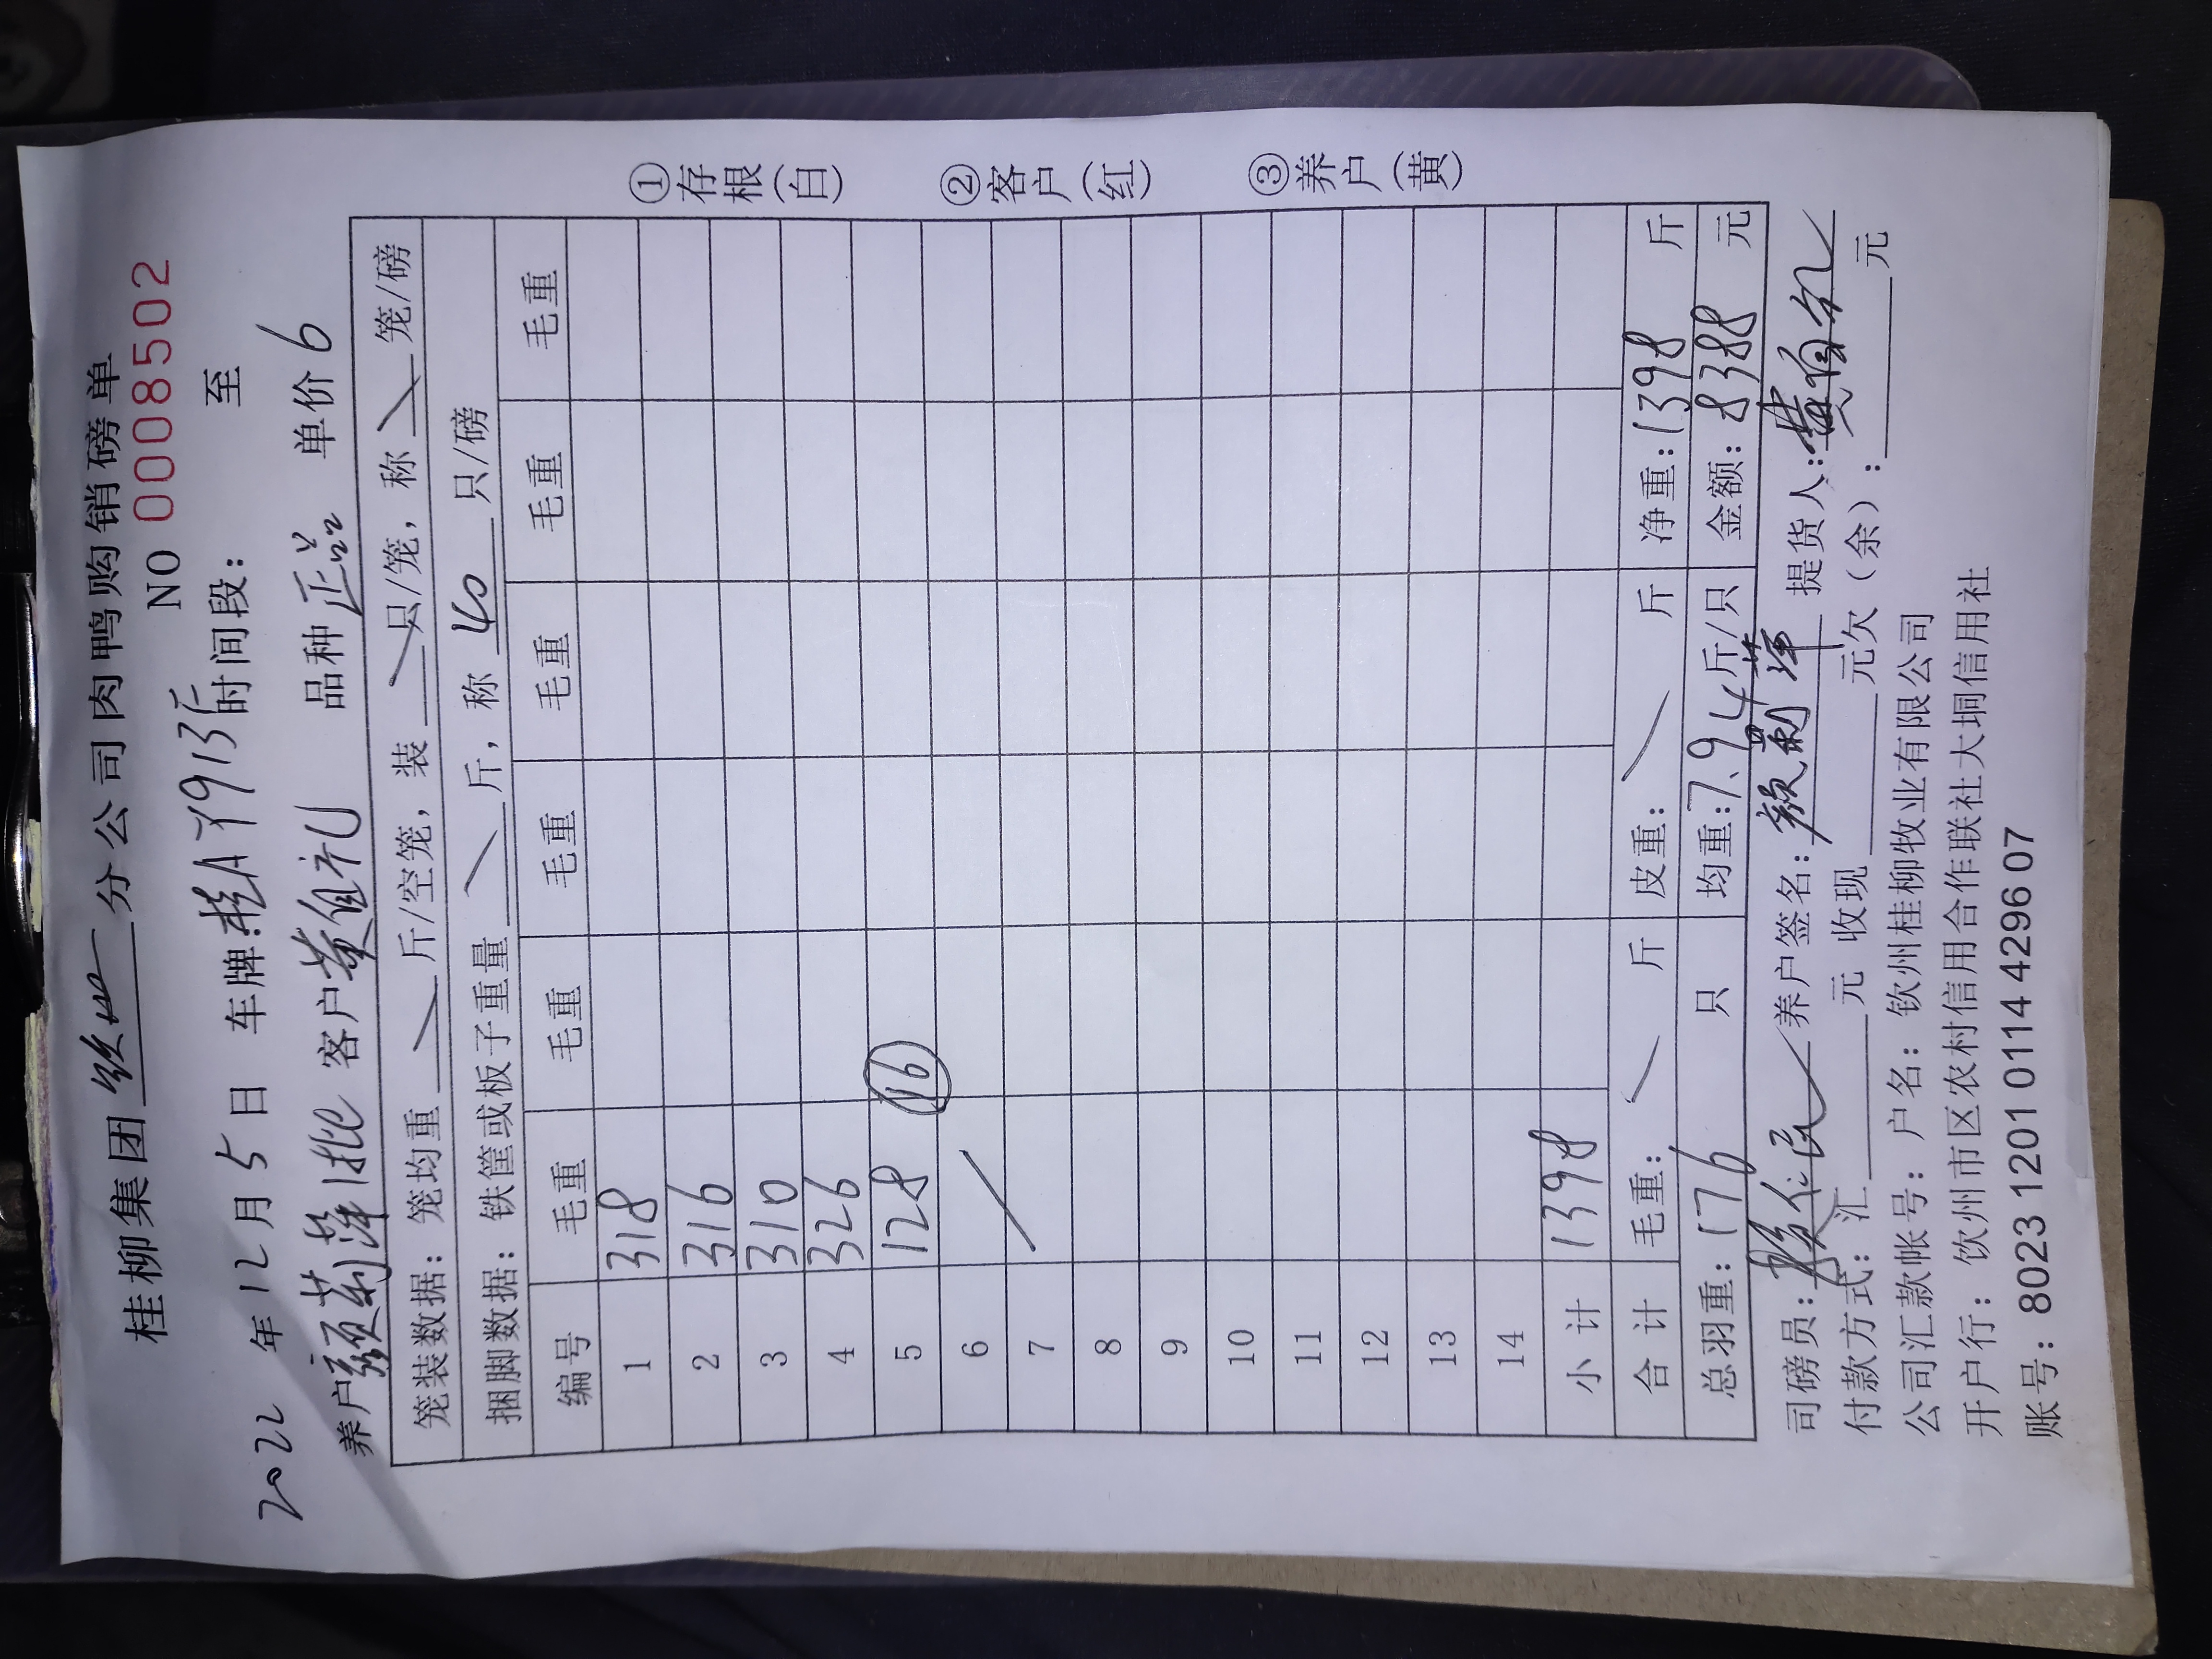 桂柳集团 钦州 分公司肉鸭购销磅单
NO 0008502
2022 年 12 月 5 日 车牌:桂A 时间段: 至
养户 颜菊萍1批 客户 黄祖礼 品种 正品 单价 6
笼装数据: 笼均重 斤/空笼, 装 只/笼, 称 笼/磅
捆脚数据: 铁筐或板子重量 斤, 称 40 只/磅
编号 毛重 毛重 毛重 毛重 毛重 毛重
1 318
2 316
3 310
4 326
5 128 16
6
7
8
9
10
11
12
13
14
小计 1398
合计 毛重: 斤 皮重: 斤 净重: 1398 斤
总羽重: 176 只 均重: 7.94 斤/只 金额: 8388 元
司磅员: 养户签名: 颜菊萍 提货人:
付款方式: 汇 元 收现 元欠(余): 元
公司汇款帐号: 户名: 钦州桂柳牧业有限公司
开户行: 钦州市区农村信用合作联社大垌信用社
账号: 8023 1201 0114 4296 07
①存根(白) ②客户(红) ③养户(黄)